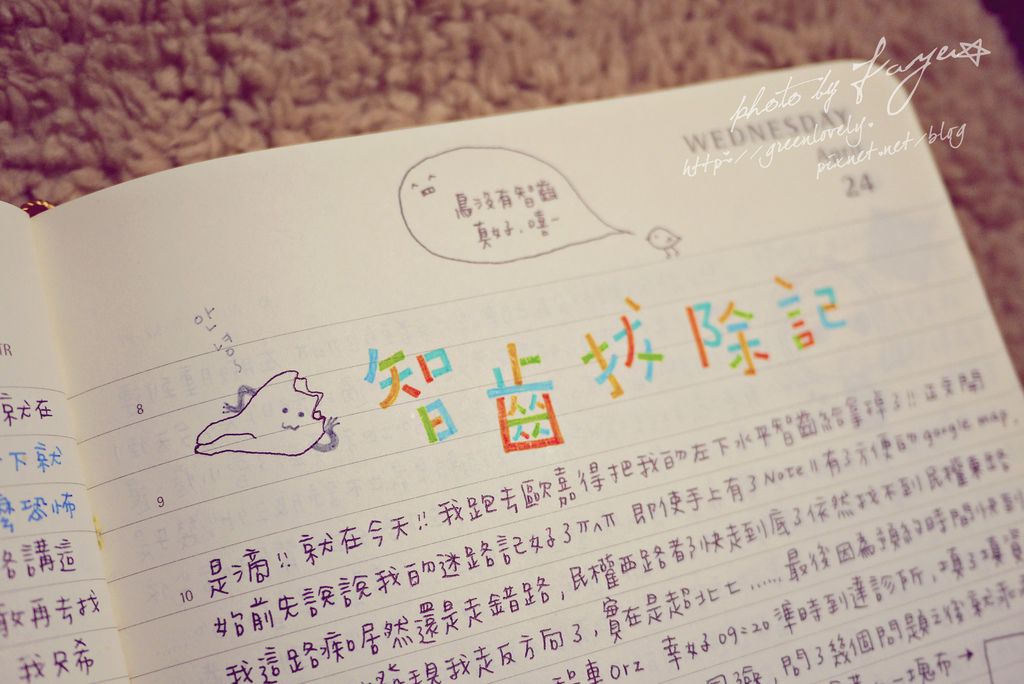 photo by Faye☆
WEDNESDAY
http://greenlovely.
pixnet.net/blog
24
鳥沒有智齒
真好.嘻~
안녕~
智齒拔除記
8
9
10
是滴!! 就在今天!! 我跑去歐嘉得把我的左下水平智齒給拿掉了!! 正文開
始前先說說我的迷路記好了ㅠㅅㅠ 即使手上有了Note II有了方便的google map,
我這路痴居然還是走錯路,民權西路都快走到底了依然找不到民權東路
發現我走反方向了,實在是超北七......最後因為預約的時間快到
程車orz 幸好09:20準時到達診所,填了填資
問了幾個問題之後就
一塊布→
TR
就在
下就
麼恐怖
路講這
敢再去找
我只希